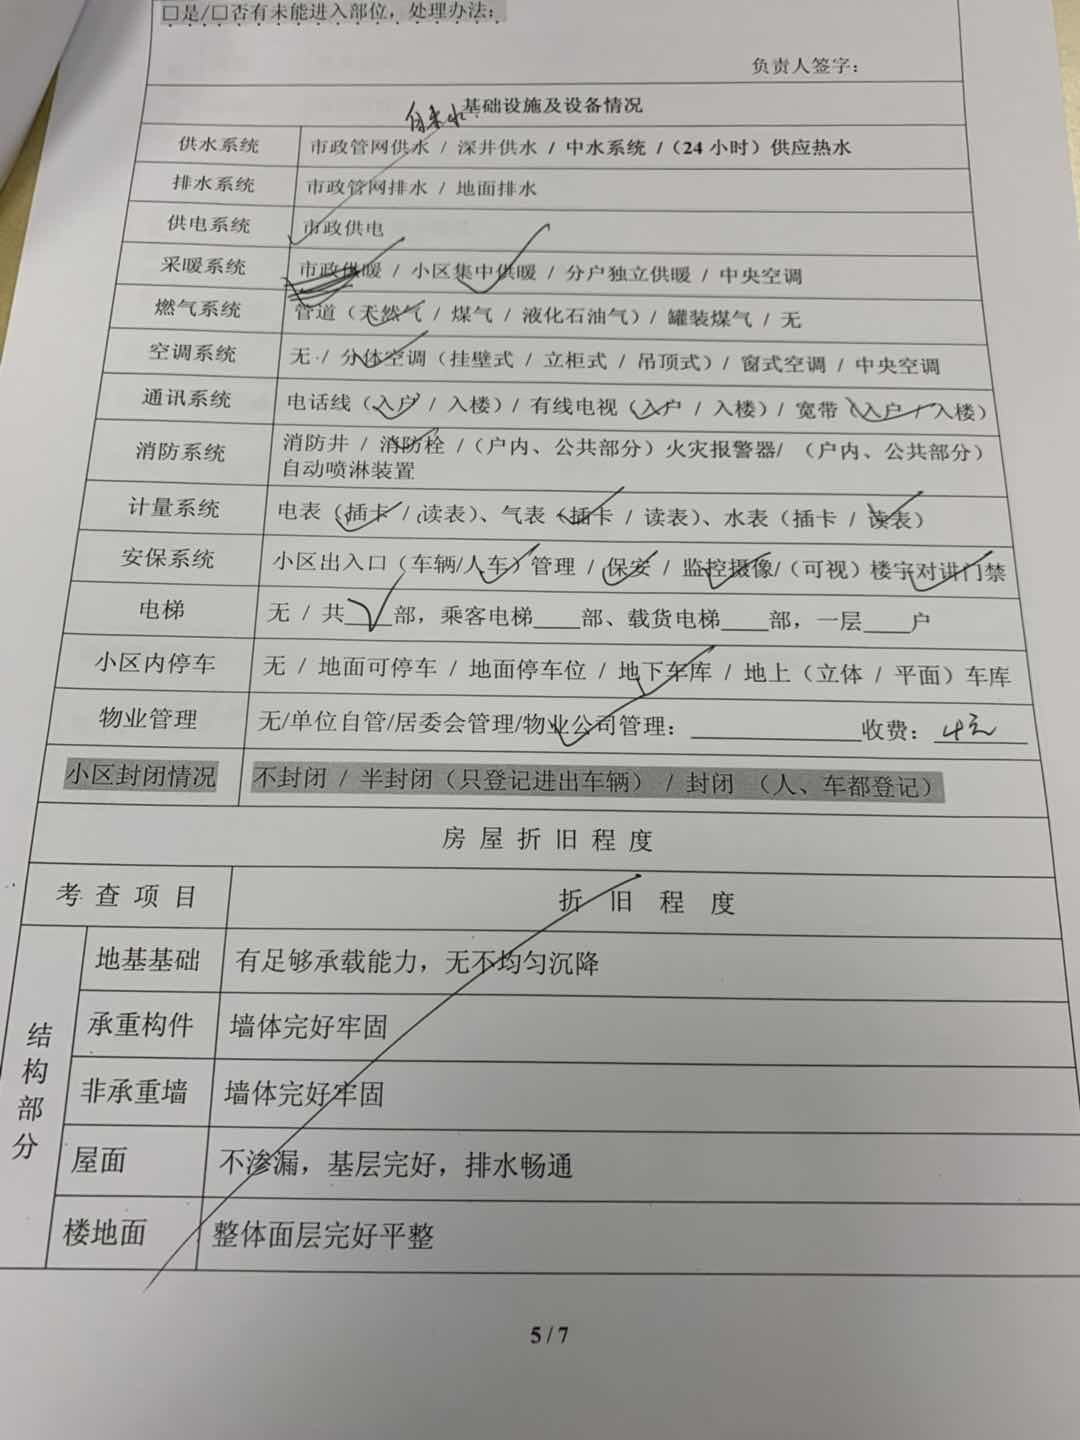 □是/□否有未能进入部位，处理办法：
负责人签字：
基础设施及设备情况
自来水
供水系统 市政管网供水 / 深井供水 / 中水系统 /（24 小时）供应热水
排水系统 市政管网排水 / 地面排水
供电系统 市政供电
采暖系统 市政供暖 / 小区集中供暖 / 分户独立供暖 / 中央空调
燃气系统 管道（天然气 / 煤气 / 液化石油气）/ 罐装煤气 / 无
空调系统 无 / 分体空调（挂壁式 / 立柜式 / 吊顶式）/ 窗式空调 / 中央空调
通讯系统 电话线（入户 / 入楼）/ 有线电视（入户 / 入楼）/ 宽带（入户 / 入楼）
消防系统 消防井 / 消防栓 /（户内、公共部分）火灾报警器/ （户内、公共部分）
自动喷淋装置
计量系统 电表（插卡 / 读表）、气表（插卡 / 读表）、水表（插卡 / 读表）
安保系统 小区出入口（车辆/人车）管理 / 保安 / 监控摄像/（可视）楼宇对讲门禁
电梯 无 / 共____部，乘客电梯____部、载货电梯____部，一层____户
小区内停车 无 / 地面可停车 / 地面停车位 / 地下车库 / 地上（立体 / 平面）车库
物业管理 无/单位自管/居委会管理/物业公司管理：______________收费：4元
小区封闭情况 不封闭 / 半封闭（只登记进出车辆） / 封闭 （人、车都登记）
房屋折旧程度
考查项目 折旧程度
结构部分
地基基础 有足够承载能力，无不均匀沉降
承重构件 墙体完好牢固
非承重墙 墙体完好牢固
屋面 不渗漏，基层完好，排水畅通
楼地面 整体面层完好平整
5 / 7